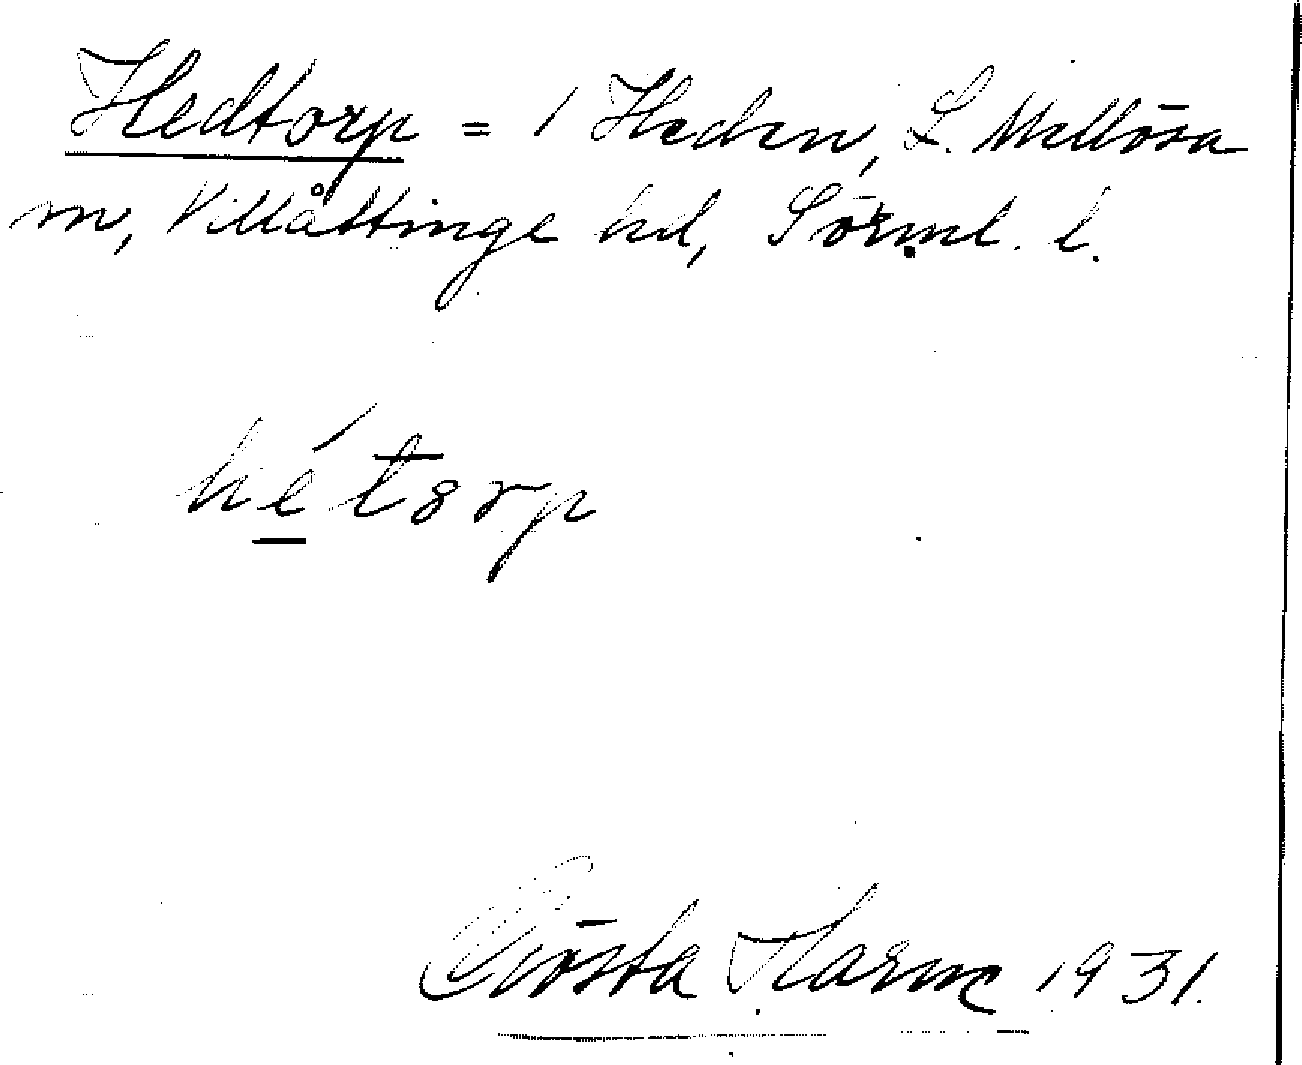 Hedtorp = / Heden, L. Mellösa
sn, Villåttinge hd, Sörml. l.
hétorp
Gösta Harme 1931.